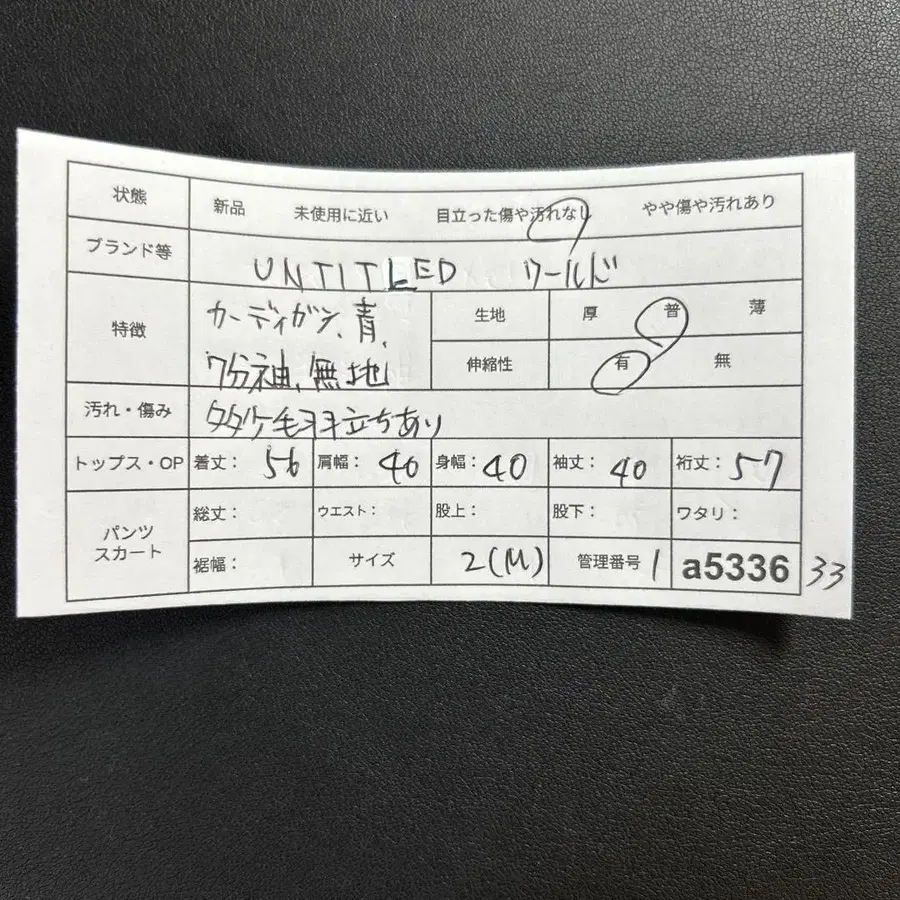 状態 新品 未使用に近い 目立った傷や汚れなし やや傷や汚れあり
ブランド等 UNTITLED ワールド
特徴 カーディガン、青、 生地 厚 普 薄
7分袖、無地 伸縮性 有 無
汚れ・傷み 毛羽立ちあり
トップス・OP 着丈: 56 肩幅: 40 身幅: 40 袖丈: 40 裄丈: 57
パンツ スカート 総丈: ウエスト: 股上: 股下: ワタリ:
裾幅: サイズ 2(M) 管理番号 1 a5336 33